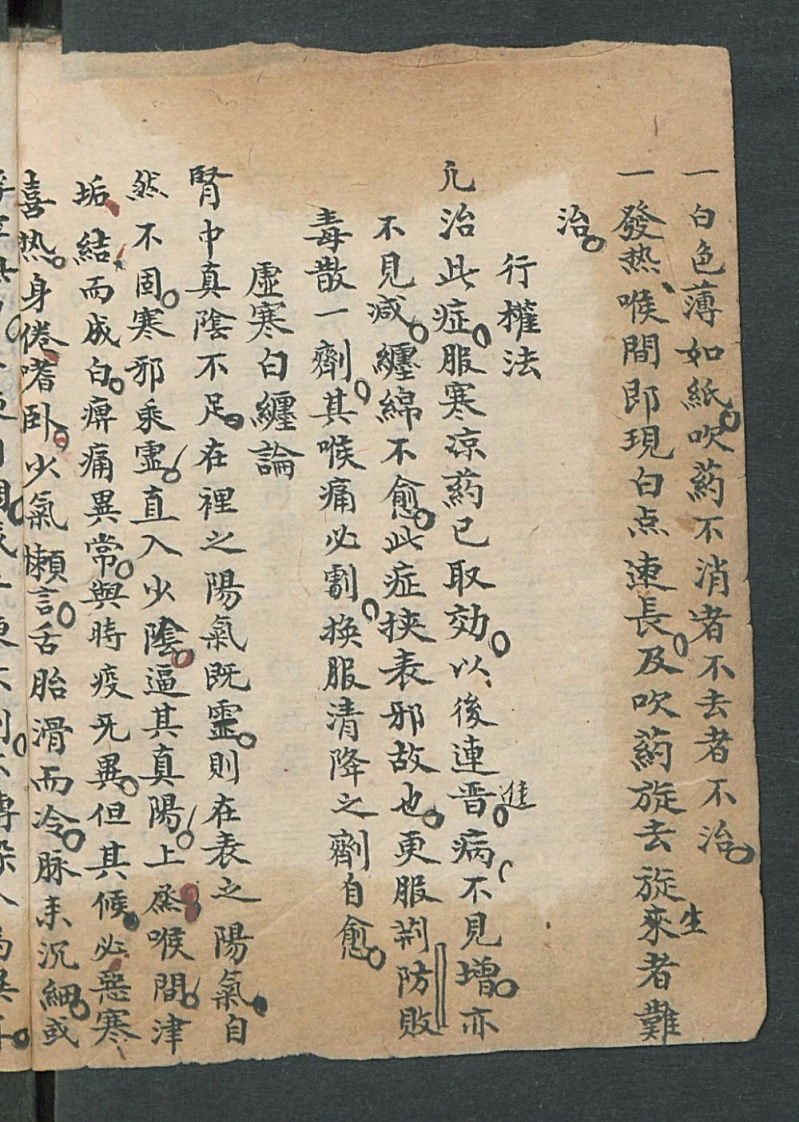 一白色薄如紙。吹葯不消者不去者不治。
一發热、喉間即現白点連長。及吹葯旋去旋來者難
生
治。
行權法
凢治此症。服寒凉葯已取効。以後連晋。病不見增。亦
進
不見减。纏綿不愈。此症挾表邪故也。更服荊防敗
毒散一劑。其喉痛必劇。换服清降之劑自愈。
虛寒白纏論
腎中真陰不足。在裡之陽氣既虛。則在表之陽氣自
然不固。寒邪乘虛。直入少陰。逼其真陽。上烝喉間。津
垢結而成白。痹痛異常。與時疫旡異。但其候。必惡寒
喜热。身倦嗜卧。少氣懶言。舌胎滑而冷。脉来沉細。或